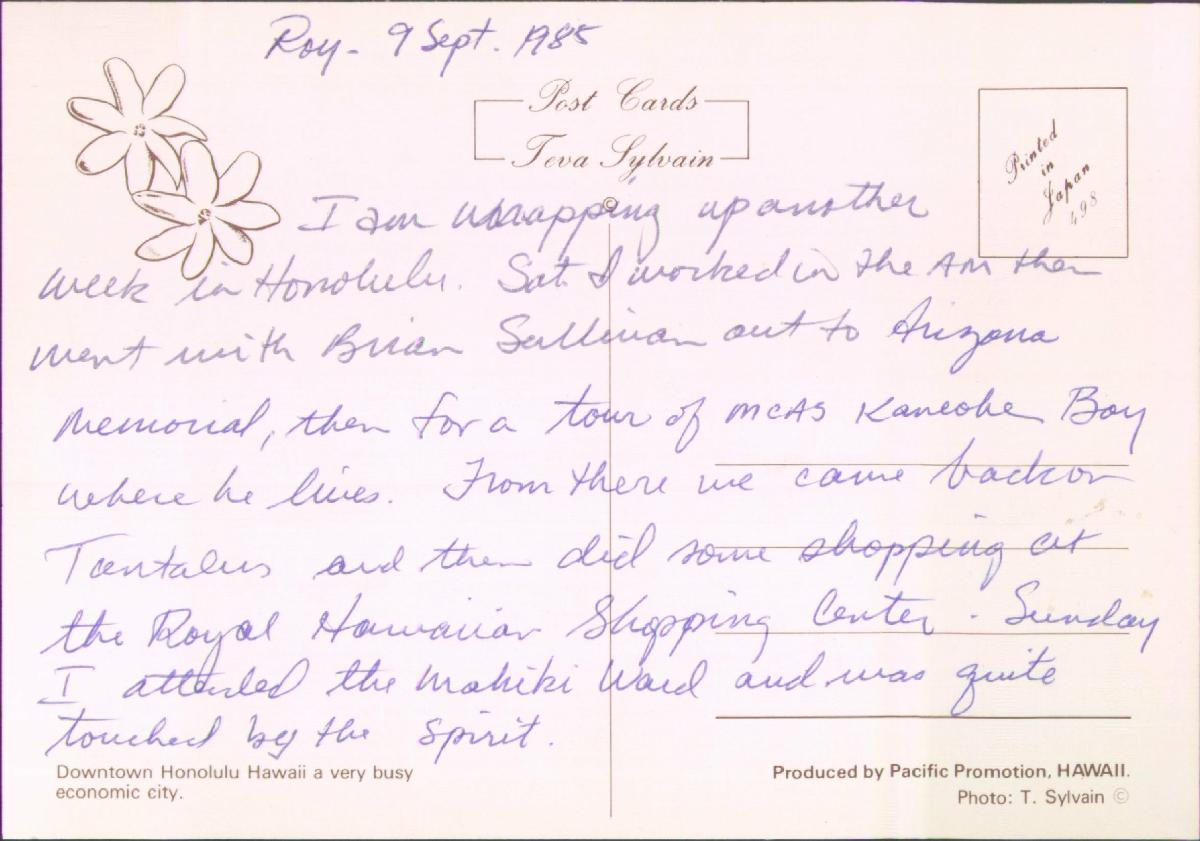 Roy - 9 Sept. 1985
Post Cards
Teva Sylvain
©
Printed
in
Japan
498
I am wrapping up another
week in Honolulu. Sat. I worked in the AM then
went with Brian Sullivan out to Arizona
Memorial, then for a tour of MCAS Kaneohe Bay
where he lives. From there we came back on
Tantalus and then did some shopping at
the Royal Hawaiian Shopping Center. Sunday
I attended the Makiki Ward and was quite
touched by the spirit.
Downtown Honolulu Hawaii a very busy
economic city.
Produced by Pacific Promotion, HAWAII.
Photo: T. Sylvain ©